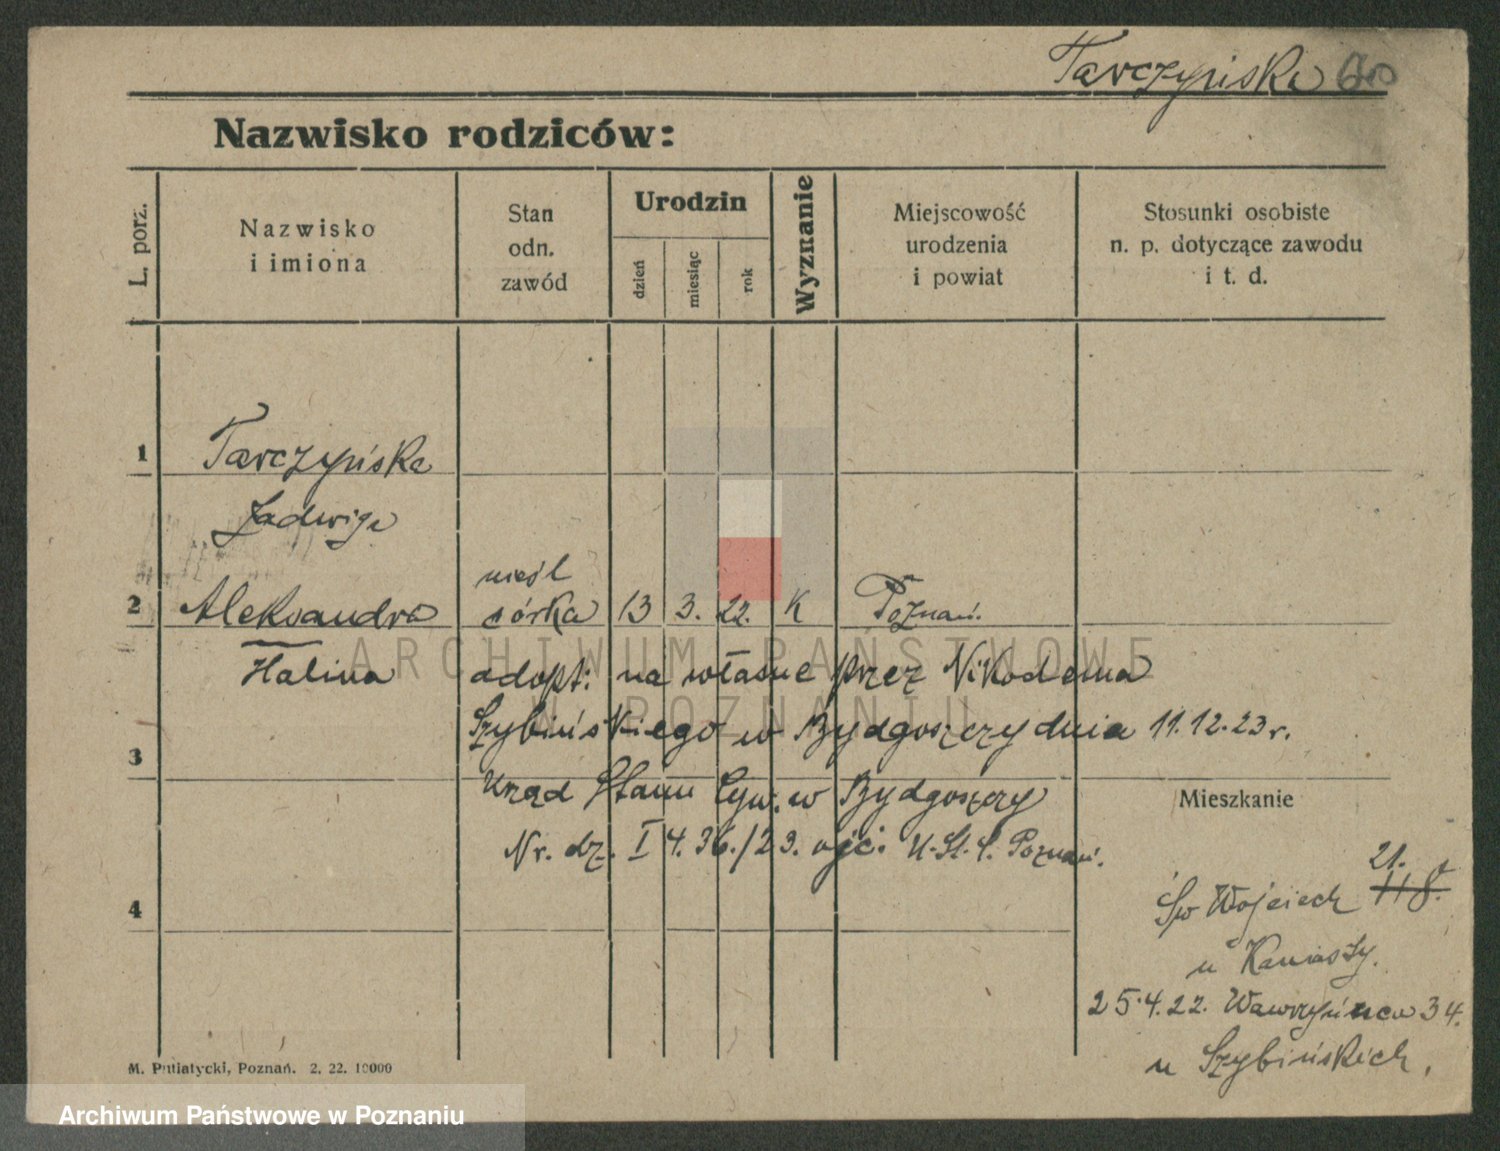 Tarczyńska
Nazwisko rodziców:
L. porz.
Nazwisko
i imiona
Stan
odn.
zawód
Urodzin
dzień
miesiąc
rok
Wyznanie
Miejscowość
urodzenia
i powiat
Stosunki osobiste
n. p. dotyczące zawodu
i t. d.
1 Tarczyńska
Jadwiga
nieśl
2 Aleksandra córka 13 3. 22. K Poznań.
ARCHIWUM PAŃSTWOWE
W POZNANIU
Halina adopt: na własne przez Nikodema
Szybińskiego w Bydgoszczy dnia 11.12.23 r.
3
Urząd Stanu Cyw. w Bydgoszczy
Mieszkanie
Nr. dz. I 4. 36./23. U. St. C. Poznań.
21.
4
Św Wojciech 118.
u
25.4.22. Wawrzyńca 34.
u Szybińskich.
M. Putiatycki, Poznań. 2. 22. 10000
Archiwum Państwowe w Poznaniu